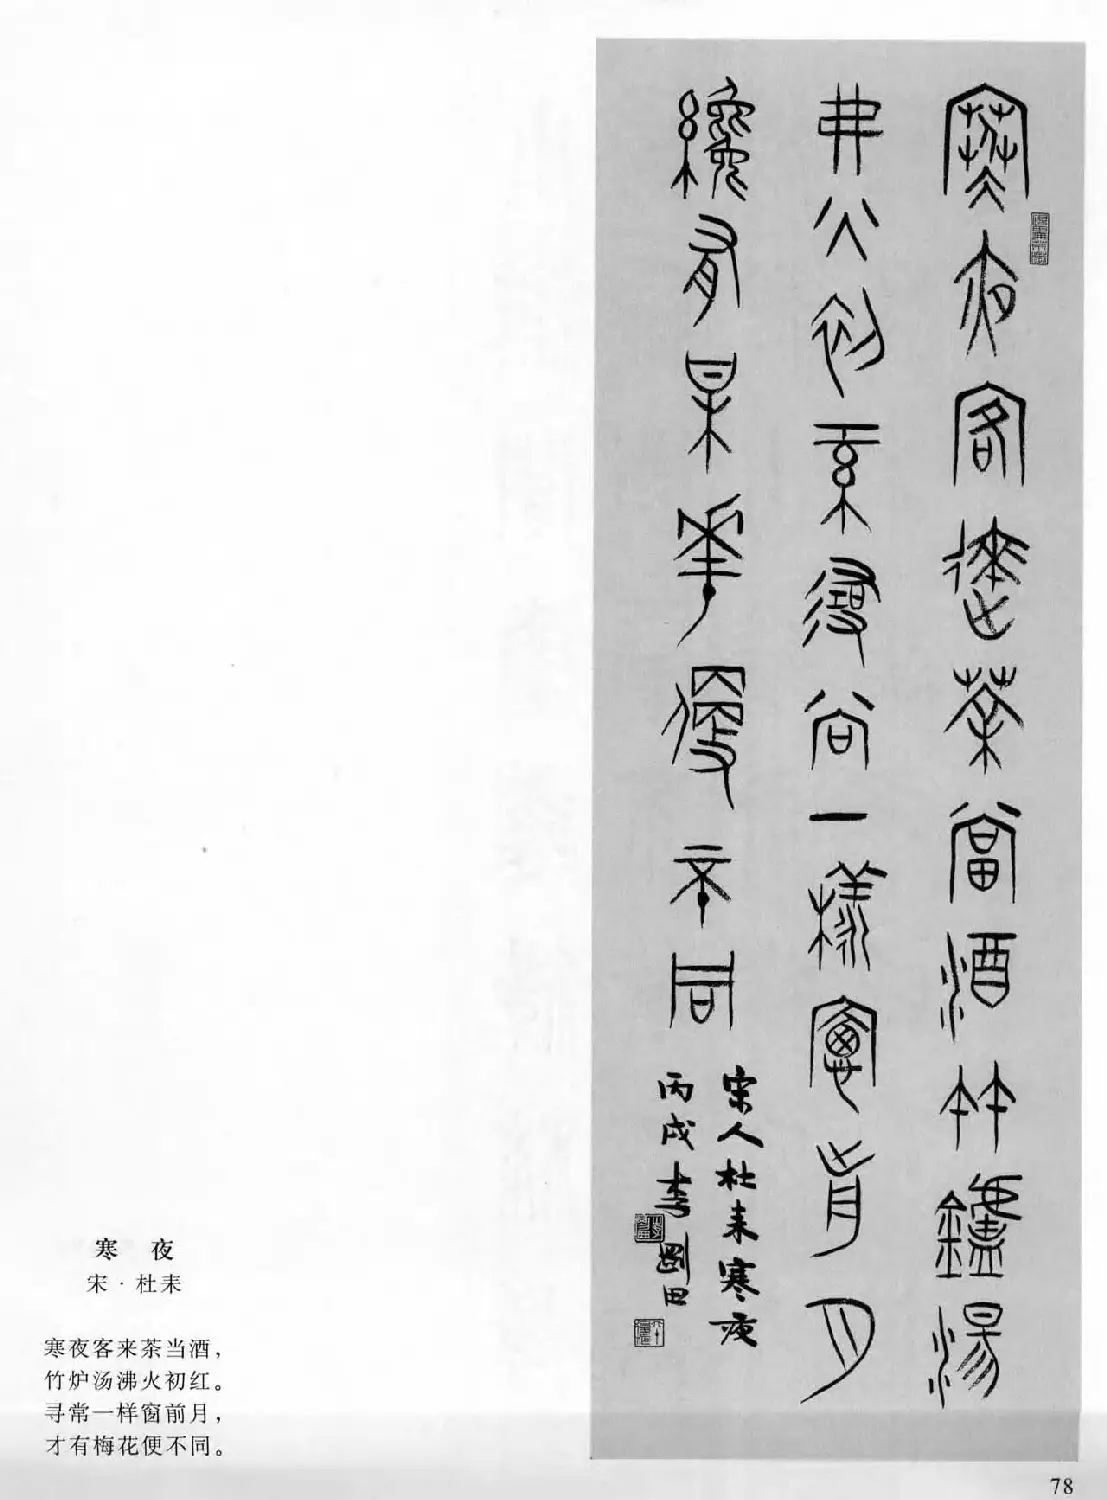 寒夜客來茶當酒竹鑪湯
弗火初紅尋尚一樣窻前月
纔有某華便不同
宋人杜耒寒夜
丙戌李剛田
寒 夜
宋·杜耒
寒夜客来茶当酒，
竹炉汤沸火初红。
寻常一样窗前月，
才有梅花便不同。
78